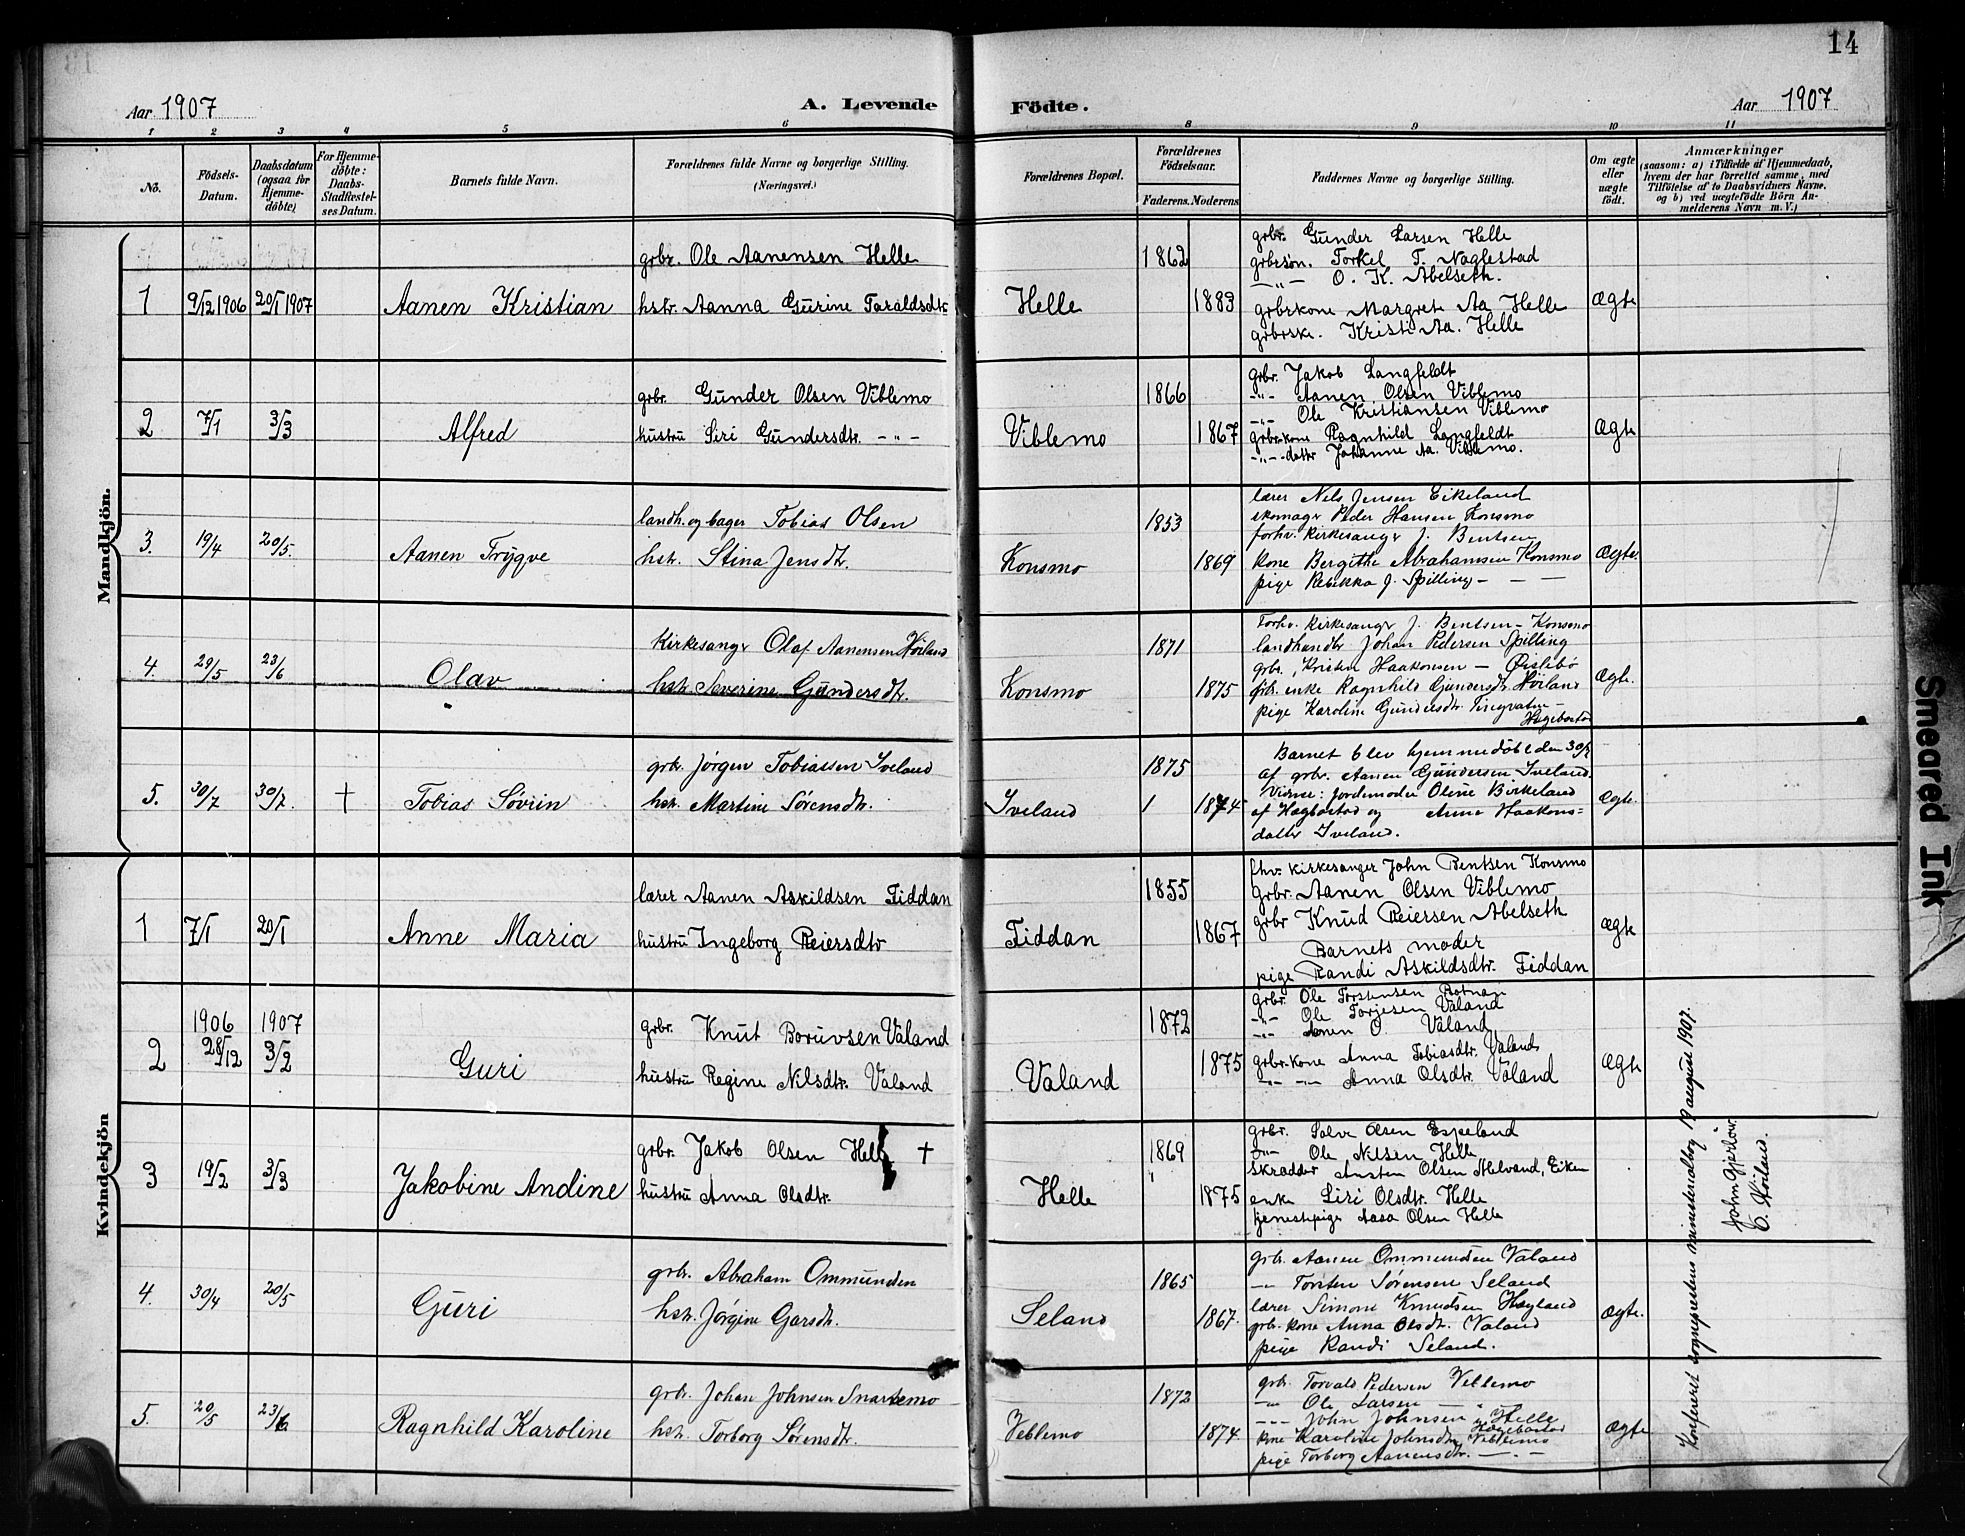 14
Aar 1907
A. Levende
Födte.
Aar 1907
1 2 3 4 5 6 8 9 10 11
No.
Födsels-Datum.
Daabsdatum (ogsaa for Hjemme-döbte)
For Hjemme-döbte: Daabs-Stadfæstel-ses Datum.
Barnets fulde Navn.
Forældrenes fulde Navne og borgerlige Stilling. (Næringsvei.)
Forældrenes Bopæl.
Forældrenes Födselsaar.
Faderens. Moderens
Faddernes Navne og borgerlige Stilling.
Om ægte eller uægte födt.
Anmærkninger
(saasom: a) i Tilfælde af Hjemmedaab, hvem der har forrettet samme, med Tilföielse af to Daabsvidners Navne, og b) ved uægtefödte Börn An-melderens Navn m. V.)
Mandkjön.
1 9/12 1906 20/1 1907 Aanen Kristian
grbr. Ole Aanensen Helle
hstr. Aanna Gurine Taraldsdtr
Helle 1862 1883
grbr. Gunder Larsen Helle
grbrsøn. Torkel T. Naglestad
—"— O. K. Abelseth.
grbrkone Margret Aa Helle
grbrske. Kristi Aa. Helle
Ægte
2 7/1 3/3 Alfred
grbr. Gunder Olsen Viblemo
hustru Siri Gundersdtr. -"-
Viblemo 1866 1867
grbr. Jakob Langfeldt
-"- Aanen Olsen Viblemo
-"- Ole Kristiansen Viblemo
grbrkone Ragnhild Langfeldt
-"- -datter Johanne Aa. Viblemo.
Ægte
3. 19/4 20/5. Aanen Trygve
landh. og bager Tobias Olsen
hstr. Stina Jensdtr.
Konsmo 1853 1869
lærer Nels Jensen Eikeland
skomagr Peder Hansen Konsmo
forhv. kirkesangr J. Bentsen
kone Bergithe Abrahamsen Konsmo
pige Rebekka J. Spilling - — —
Ægte.
4. 29/5 23/6 Olav
Kirkesangr Olaf Aanensen Høiland
hstr. Severine Gundersdtr.
Konsmo 1871 1875
Forhv. kirkesangr J. Bentsen - Konsmo
landhandlr Johan Pedersen Spilling
grbr. Kristen Haakonsen — Øislebø
grb. enke Ragnhild Gundersdtr. Høiland
pige Karoline Gundersdtr. Tingvatn -
Hægebostad
Ægte.
5. 30/7 30/7 + Tobias Søvrin
grbr. Jørgen Tobiassen Iveland
hstr. Martine Sørensdtr.
Iveland 1875 1874
Barnet blev hjemmedøbt den 30/7
af grbr. Aanen Gundersen Iveland.
Vidner: jordemoder Oline Birkeland
af Hægbostad og Anne Haakons=
datter Iveland.
Ægte.
Kvindekjön
1 7/1 20/1 Anne Maria
lærer Aanen Askildsen Fiddan
hustru Ingeborg Reiersdtr
Fiddan 1855 1867
fhv. kirkesanger John Bentsen Konsmo
Grbr. Aanen Olsen Viblemo
grbr Knud Reiersen Abelseth
Barnets moder
pige Randi Askildsdtr. Fiddan
Ægte
2 1906 28/12 1907 3/2 Guri
grbr. Knut Boruvsen Valand
hustru Regine Nilsdtr. Valand
Valand 1872 1875
grbr. Ole Torstensen
-"- Ole Torjesen Valand
-"- Aanen O. Valand
grbr.kone Anna Tobiasdtr. Valand
-"- -"- Anna Olsdtr. Valand
Ægte
3 19/2 3/3 Jakobine Andine
grbr. Jakob Olsen Helle +
hustru Anna Olsdtr.
Helle 1869 1875
grbr. Salve Olsen Espeland
-"- Ole Nilsen Helle
skrædder Austen Olsen Helvand, Eiken
enke Siri Olsdtr. Helle
tjenestepige Aasa Olsen Helle
4. 30/4 20/5 Guri
grbr. Abraham Ommundsen
hstr. Jørgine Garsdtr.
Seland 1865 1867.
grb. Aanen Ommundsen Valand
-"- Torsten Sørensen Seland
lærer Simone Knudsen Høyland
grb. kone Anna Olsdtr. Valand
pige Randi Seland.
Ægte.
5. 20/5 23/6 Ragnhild Karoline
grbr. Johan Johnsen Snartemo
hstr. Torborg Sørensdtr.
Veblemo 1872 1874
grb. Torvald Pedersen Veblemo
-"- Ole Larsen — " —
--- John Johnsen Helle
Hægebostad
kone Karoline Johnsdtr Viblemo
pige Torborg Aanensdtr. — " —
Ægte
Konfereret sogneprestens ministerialbog 19 august 1907.
John Gjerløw.
O. Høiland.
Smeared Ink